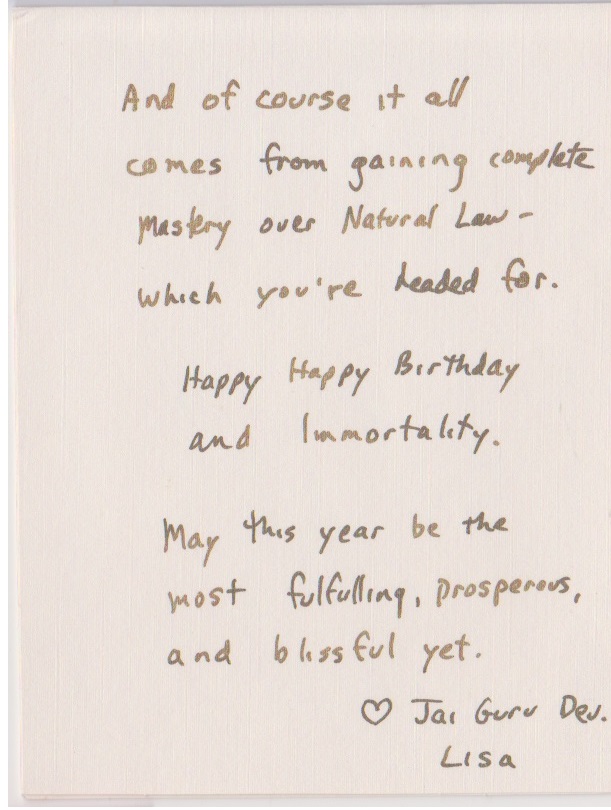 And of course it all
comes from gaining complete
Mastery over Natural Law -
which you're headed for.
Happy Happy Birthday
and Immortality.
May this year be the
most fulfulling, prosperous,
and blissful yet.
♡ Jai Guru Dev.
Lisa